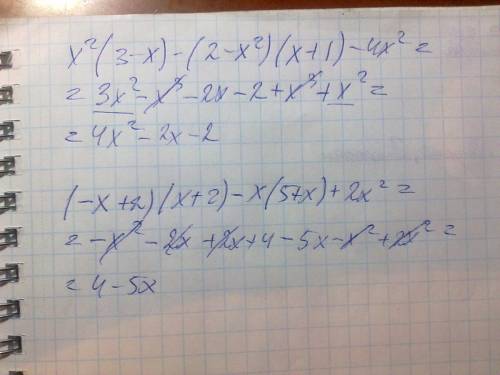 x²(3-x)-(2-x²)(x+1)-4x²=
= 3x²-x³-2x-2+x³+x²=
= 4x²-2x-2
(-x+2)(x+2)-x(5+x)+2x²=
= -x²-2x+2x+4-5x-x²+2x²=
= 4-5x